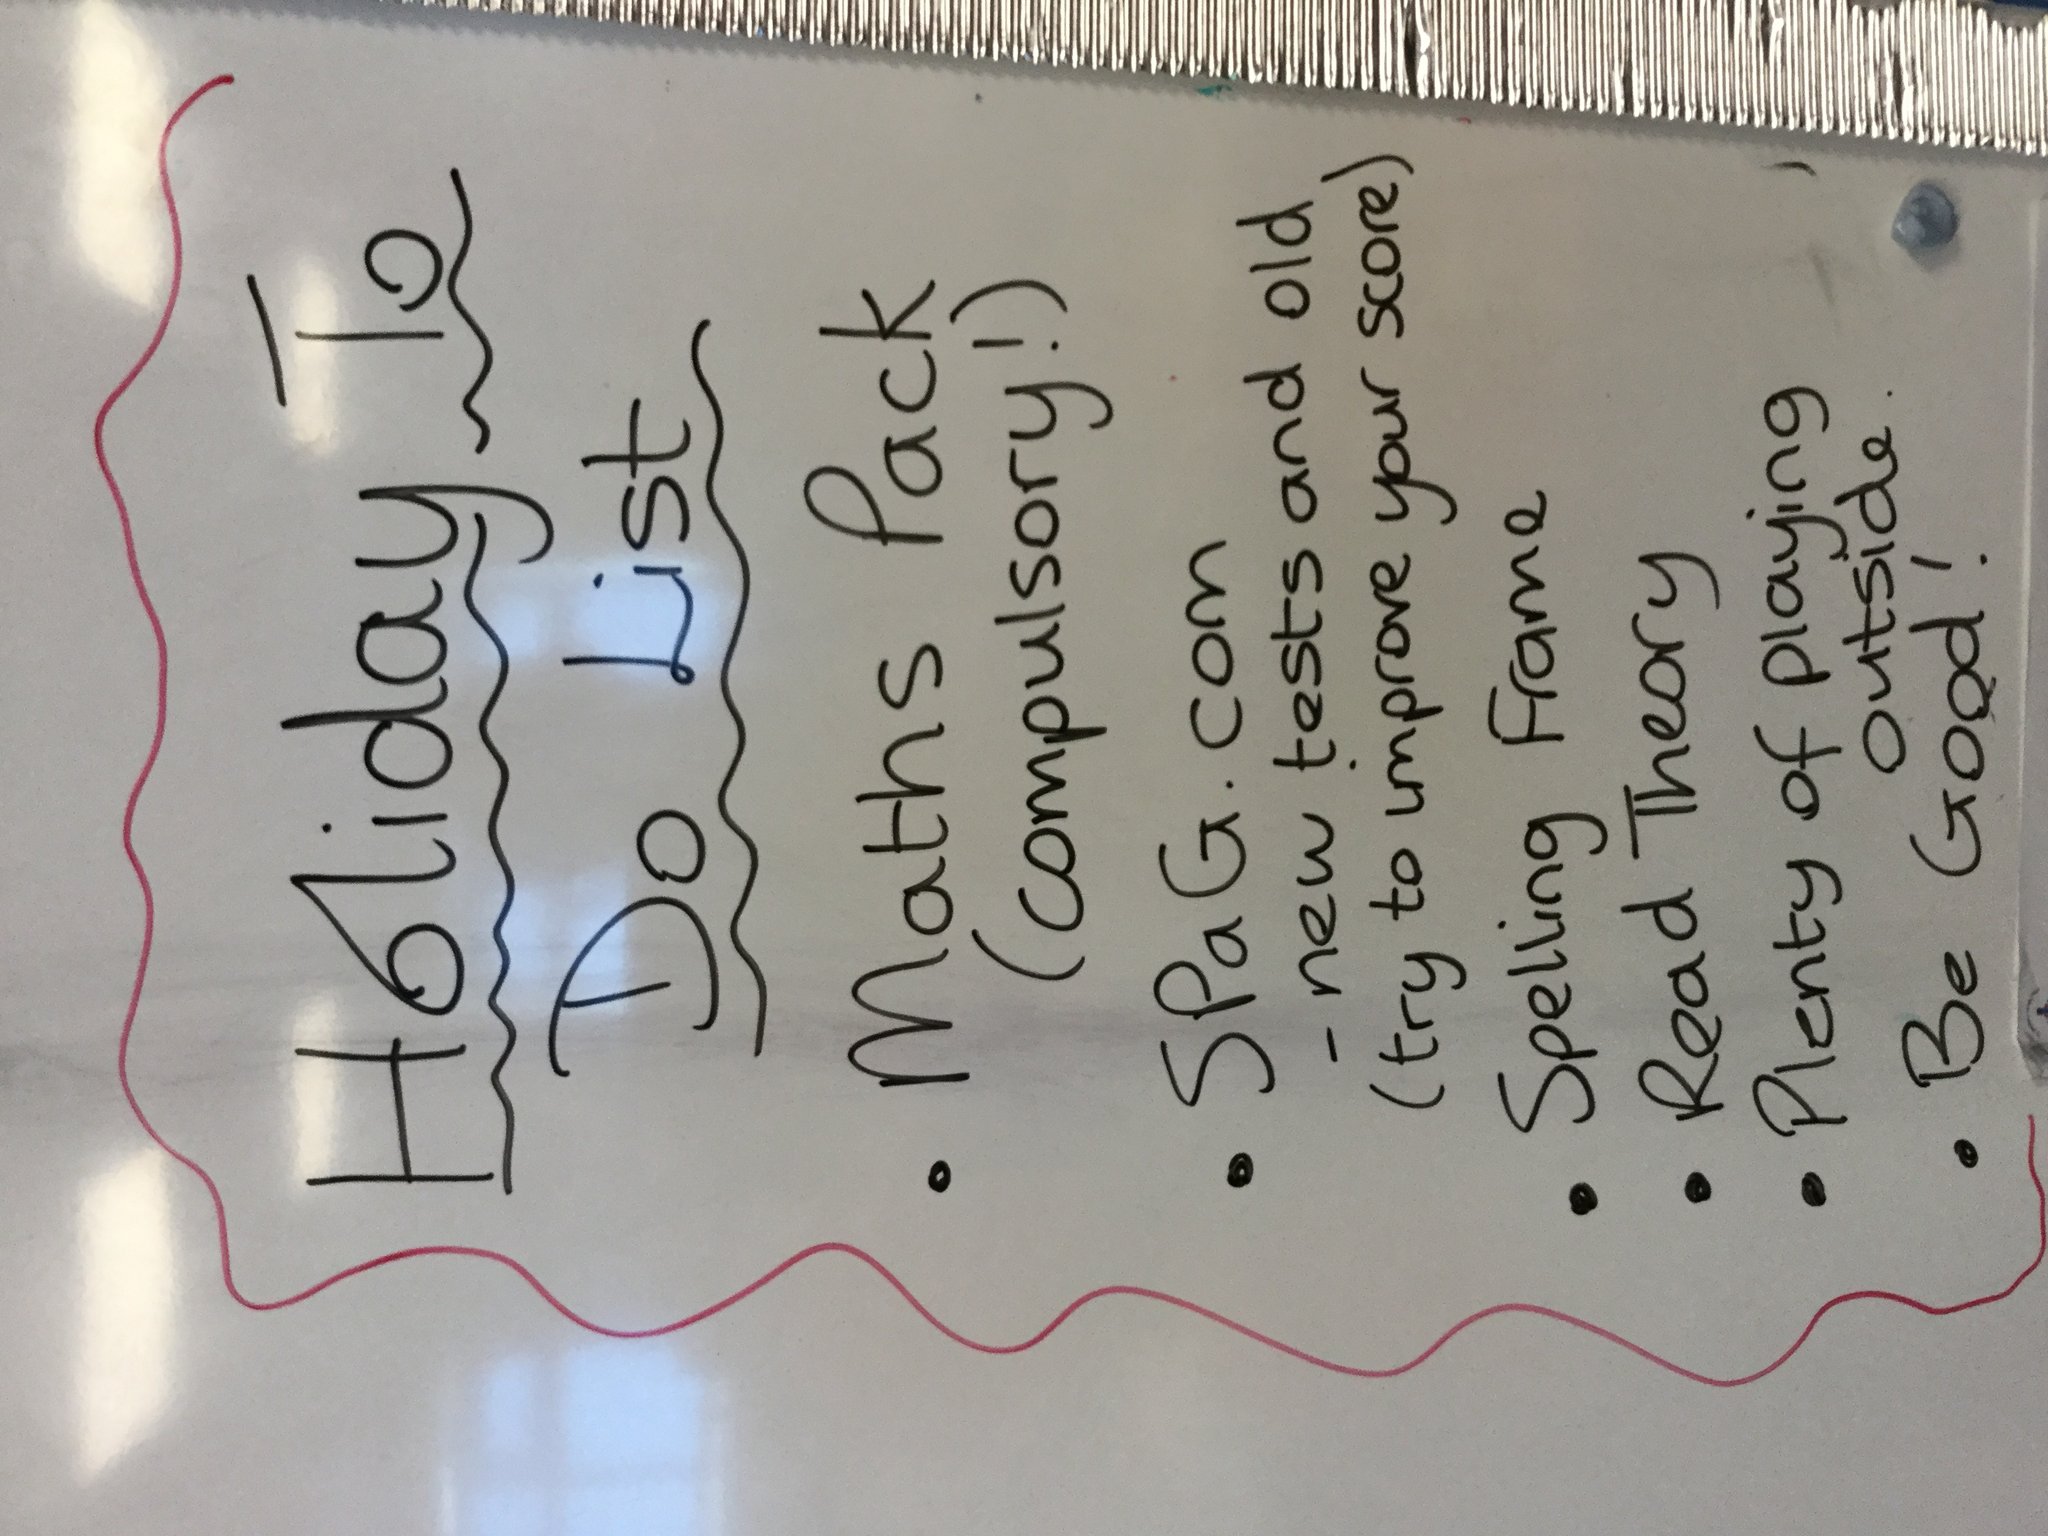 Holiday To
Do List
• Maths Pack
(compulsory!)
• SPaG.com
- new tests and old
(try to improve your score)
• Spelling Frame
• Read Theory
• Plenty of playing
outside.
• Be Good!